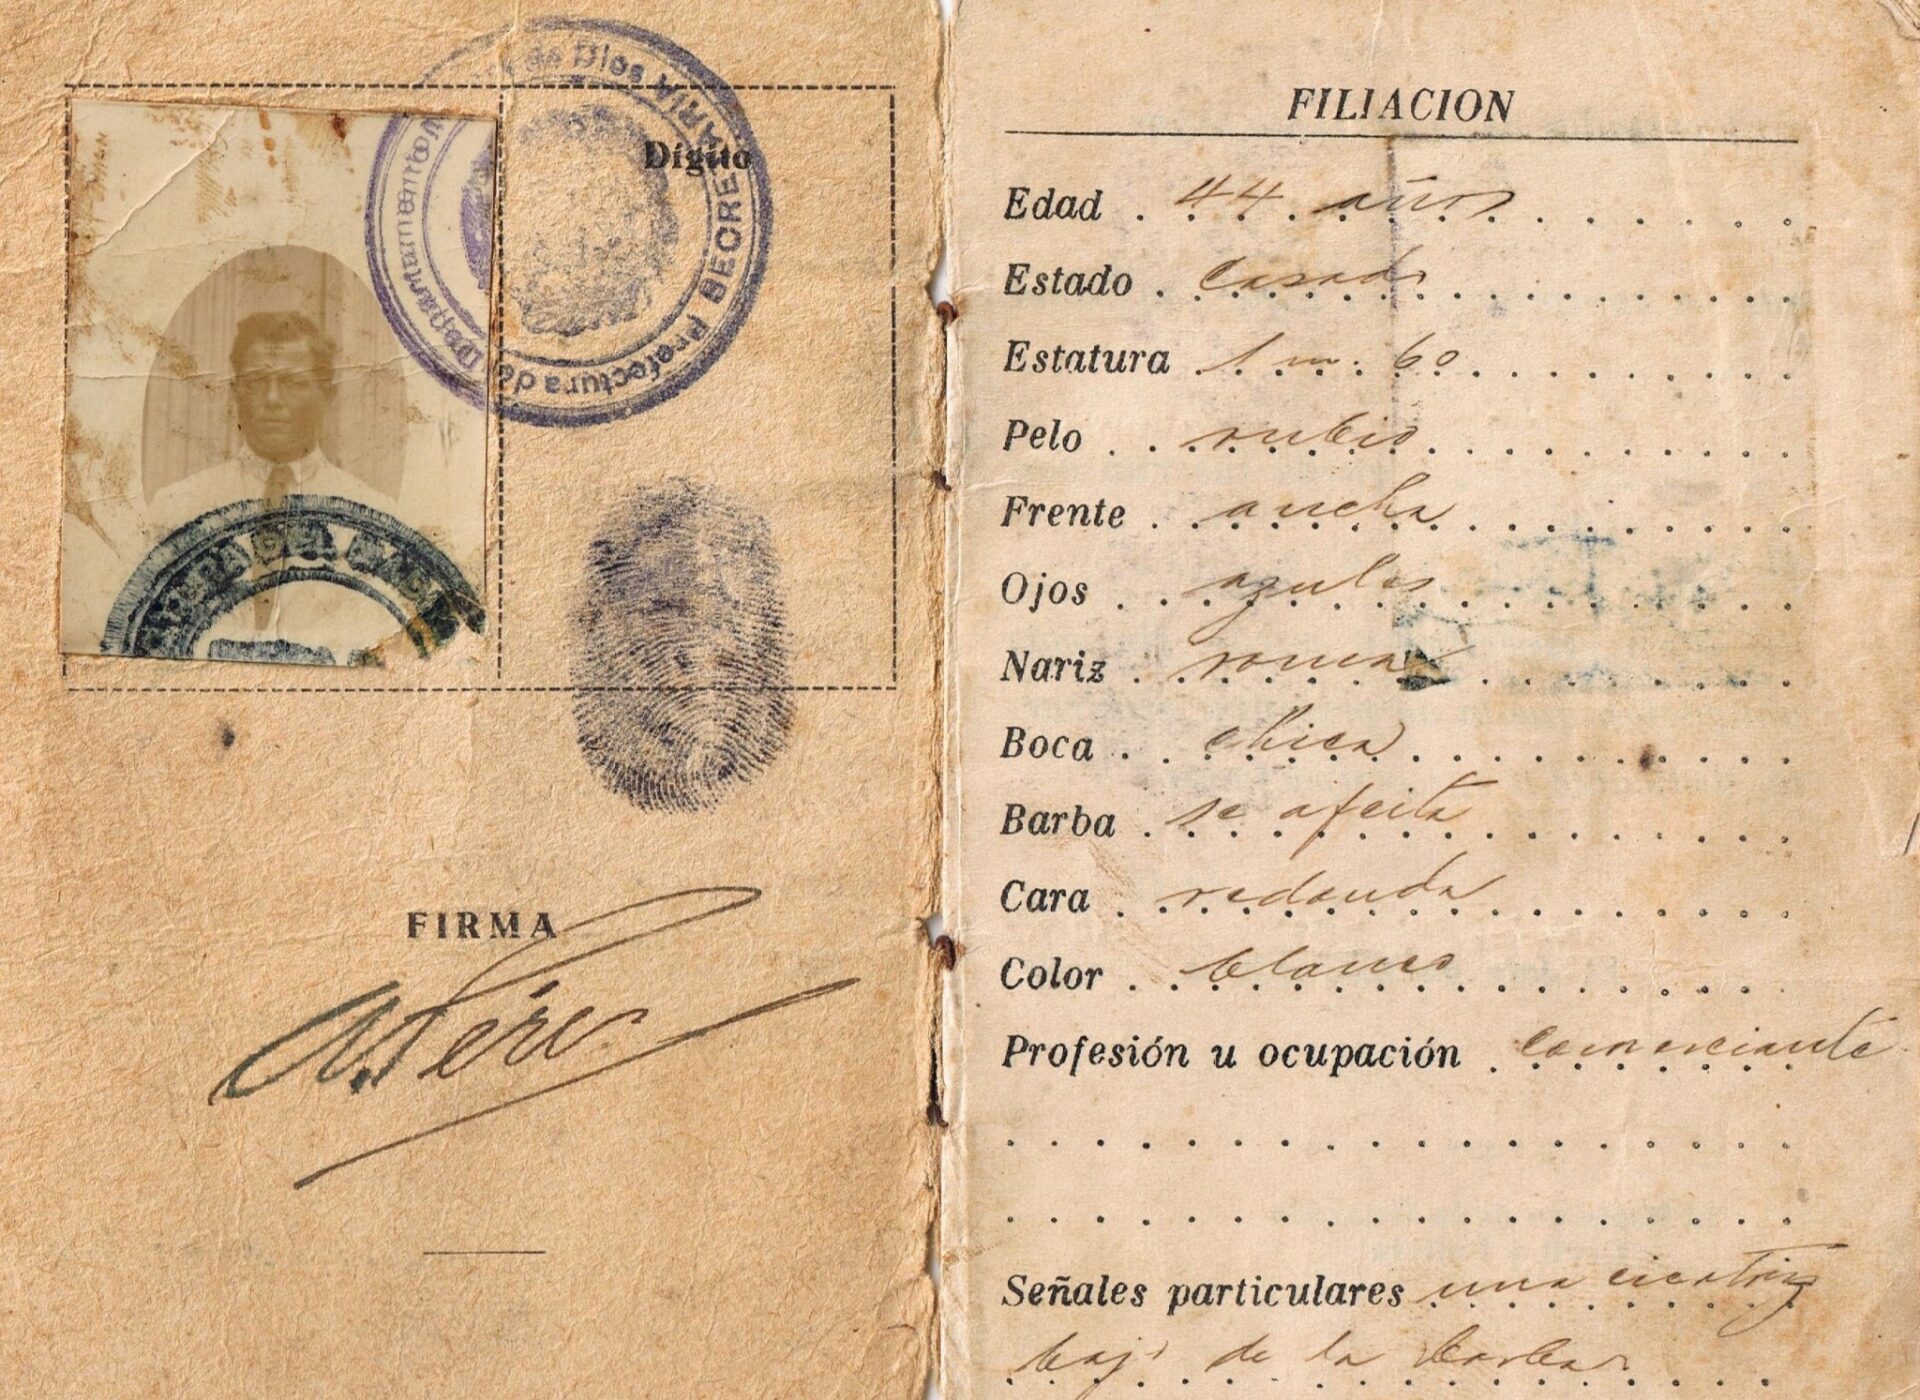 Departamento Madre de Dios
Prefectura de
SECRETARIA
Dígito
FIRMA
FILIACION
Edad 44 años
Estado Casado
Estatura 1 m. 60
Pelo rubio
Frente ancha
Ojos azules
Nariz roma
Boca chica
Barba se afeita
Cara redonda
Color blanco
Profesión u ocupación comerciante
Señales particulares una cicatriz
bajo de la barba